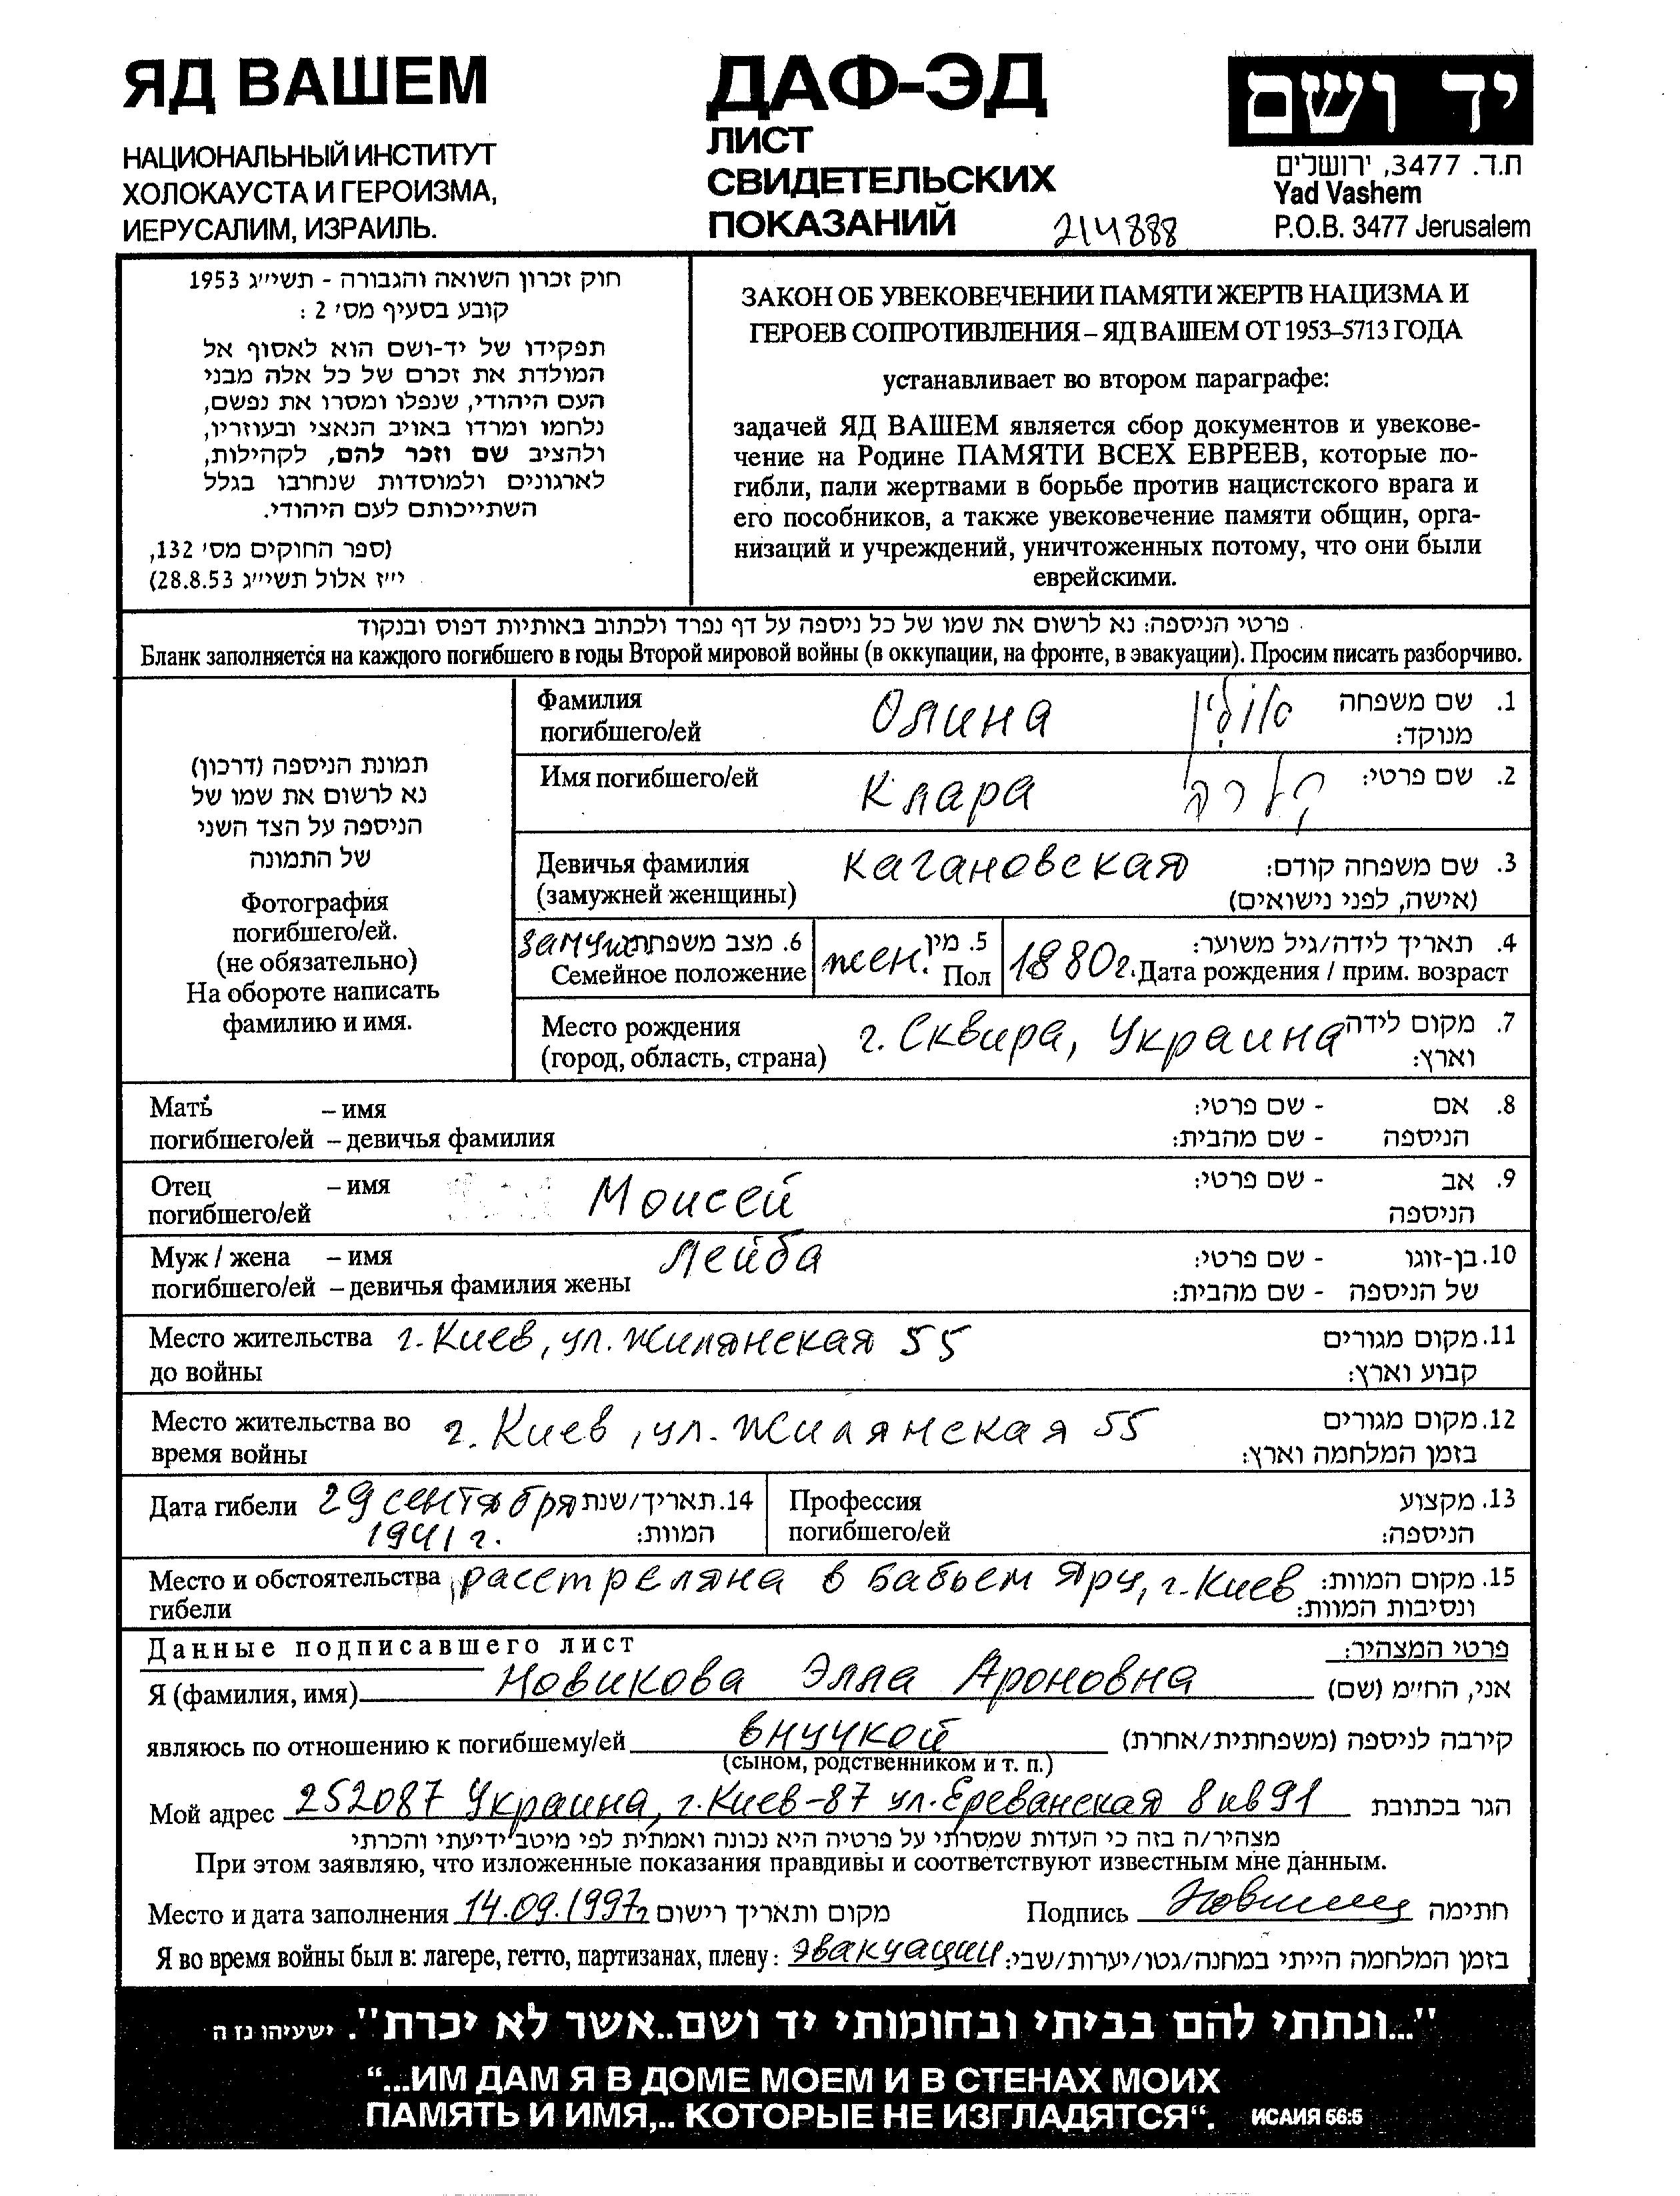 ЯД ВАШЕМ
НАЦИОНАЛЬНЫЙ ИНСТИТУТ
ХОЛОКАУСТА И ГЕРОИЗМА,
ИЕРУСАЛИМ, ИЗРАИЛЬ.
ДАФ-ЭД
ЛИСТ
СВИДЕТЕЛЬСКИХ
ПОКАЗАНИЙ
214888
יד ושם
ת.ד. 3477, ירושלים
Yad Vashem
P.O.B. 3477 Jerusalem
חוק זכרון השואה והגבורה - תשי״ג 1953
קובע בסעיף מס׳ 2 :
תפקידו של יד-ושם הוא לאסוף אל
המולדת את זכרם של כל אלה מבני
העם היהודי, שנפלו ומסרו את נפשם,
נלחמו ומרדו באויב הנאצי ובעוזריו,
ולהציב שם וזכר להם, לקהילות,
לארגונים ולמוסדות שנחרבו בגלל
השתייכותם לעם היהודי.
(ספר החוקים מס׳ 132,
י״ז אלול תשי״ג 28.8.53)
ЗАКОН ОБ УВЕКОВЕЧЕНИИ ПАМЯТИ ЖЕРТВ НАЦИЗМА И
ГЕРОЕВ СОПРОТИВЛЕНИЯ – ЯД ВАШЕМ ОТ 1953–5713 ГОДА
устанавливает во втором параграфе:
задачей ЯД ВАШЕМ является сбор документов и увекове-
чение на Родине ПАМЯТИ ВСЕХ ЕВРЕЕВ, которые по-
гибли, пали жертвами в борьбе против нацистского врага и
его пособников, а также увековечение памяти общин, орга-
низаций и учреждений, уничтоженных потому, что они были
еврейскими.
פרטי הניספה: נא לרשום את שמו של כל ניספה על דף נפרד ולכתוב באותיות דפוס ובנקוד
Бланк заполняется на каждого погибшего в годы Второй мировой войны (в оккупации, на фронте, в эвакуации). Просим писать разборчиво.
תמונת הניספה (דרכון)
נא לרשום את שמו של
הניספה על הצד השני
של התמונה
Фотография
погибшего/ей.
(не обязательно)
На обороте написать
фамилию и имя.
Фамилия
погибшего/ей
Олина
אולין
1. שם משפחה
מנוקד:
Имя погибшего/ей
Клара
קלרה
2. שם פרטי:
Девичья фамилия
(замужней женщины)
Кагановская
3. שם משפחה קודם:
(אישה, לפני נישואים)
замуж
6. מצב משפחתי
Семейное положение
жен.
5. מין:
Пол
1880г.
4. תאריך לידה/גיל משוער:
Дата рождения / прим. возраст
Место рождения
(город, область, страна)
г. Сквира, Украина
7. מקום לידה
וארץ:
Мать – имя
погибшего/ей – девичья фамилия
8. אם - שם פרטי:
הניספה - שם מהבית:
Отец – имя
погибшего/ей
Моисей
9. אב - שם פרטי:
הניספה
Муж / жена – имя
погибшего/ей – девичья фамилия жены
Лейба
10. בן-זוגו - שם פרטי:
של הניספה - שם מהבית:
Место жительства
до войны
г. Киев, ул. Жилянская 55
11. מקום מגורים
קבוע וארץ:
Место жительства во
время войны
г. Киев, ул. Жилянская 55
12. מקום מגורים
בזמן המלחמה וארץ:
Дата гибели
29 сентября
1941 г.
14. תאריך/שנת
המוות:
Профессия
погибшего/ей
13. מקצוע
הניספה:
Место и обстоятельства
гибели
расстреляна в Бабьем Яру, г. Киев
15. מקום המוות:
ונסיבות המוות:
Данные подписавшего лист
פרטי המצהיר:
Я (фамилия, имя) Новикова Элла Ароновна אני, החיימ (שם)
являюсь по отношению к погибшему/ей внучкой קירבה לניספה (משפחתית/אחרת)
(сыном, родственником и т. п.)
Мой адрес 252087 Украина, г. Киев-87 ул. Ереванская 8 кв 91 הגר בכתובת
מצהיר/ה בזה כי העדות שמסרתי על פרטיה היא נכונה ואמתית לפי מיטב ידיעתי והכרתי
При этом заявляю, что изложенные показания правдивы и соответствуют известным мне данным.
Место и дата заполнения 14.09.1997г מקום ותאריך רישום Подпись חתימה
Я во время войны был в: лагере, гетто, партизанах, плену: эвакуации בזמן המלחמה הייתי במחנה/גטו/יערות/שבי:
"...ונתתי להם בביתי ובחומותי יד ושם..אשר לא יכרת". ישעיהו נז ה
“...ИМ ДАМ Я В ДОМЕ МОЕМ И В СТЕНАХ МОИХ
ПАМЯТЬ И ИМЯ,.. КОТОРЫЕ НЕ ИЗГЛАДЯТСЯ“. ИСАИЯ 56:5